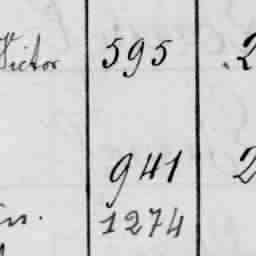 Victor 595 2
941 2
1274